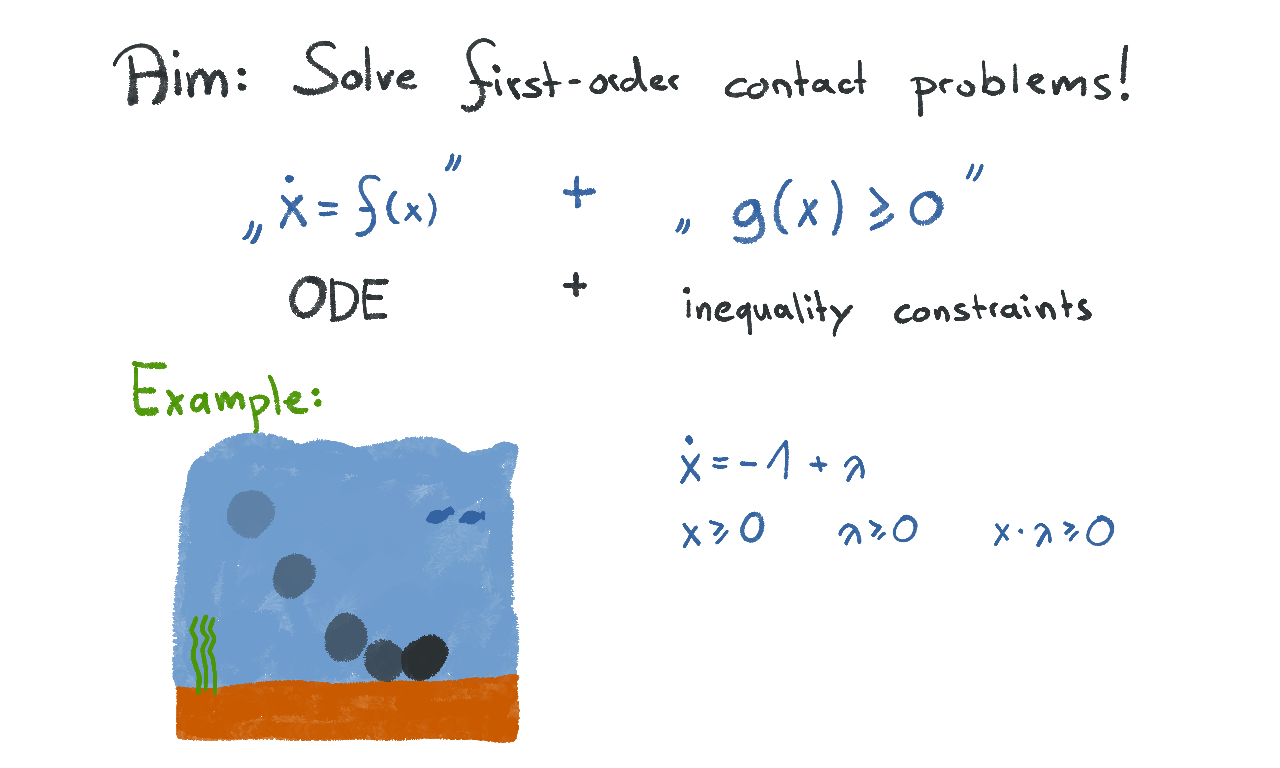 Aim: Solve first-order contact problems!
„ẋ = f(x)” + „g(x) ⩾ 0”
ODE + inequality constraints
Example:
ẋ = -1 + λ
x ⩾ 0 λ ⩾ 0 x · λ ⩾ 0